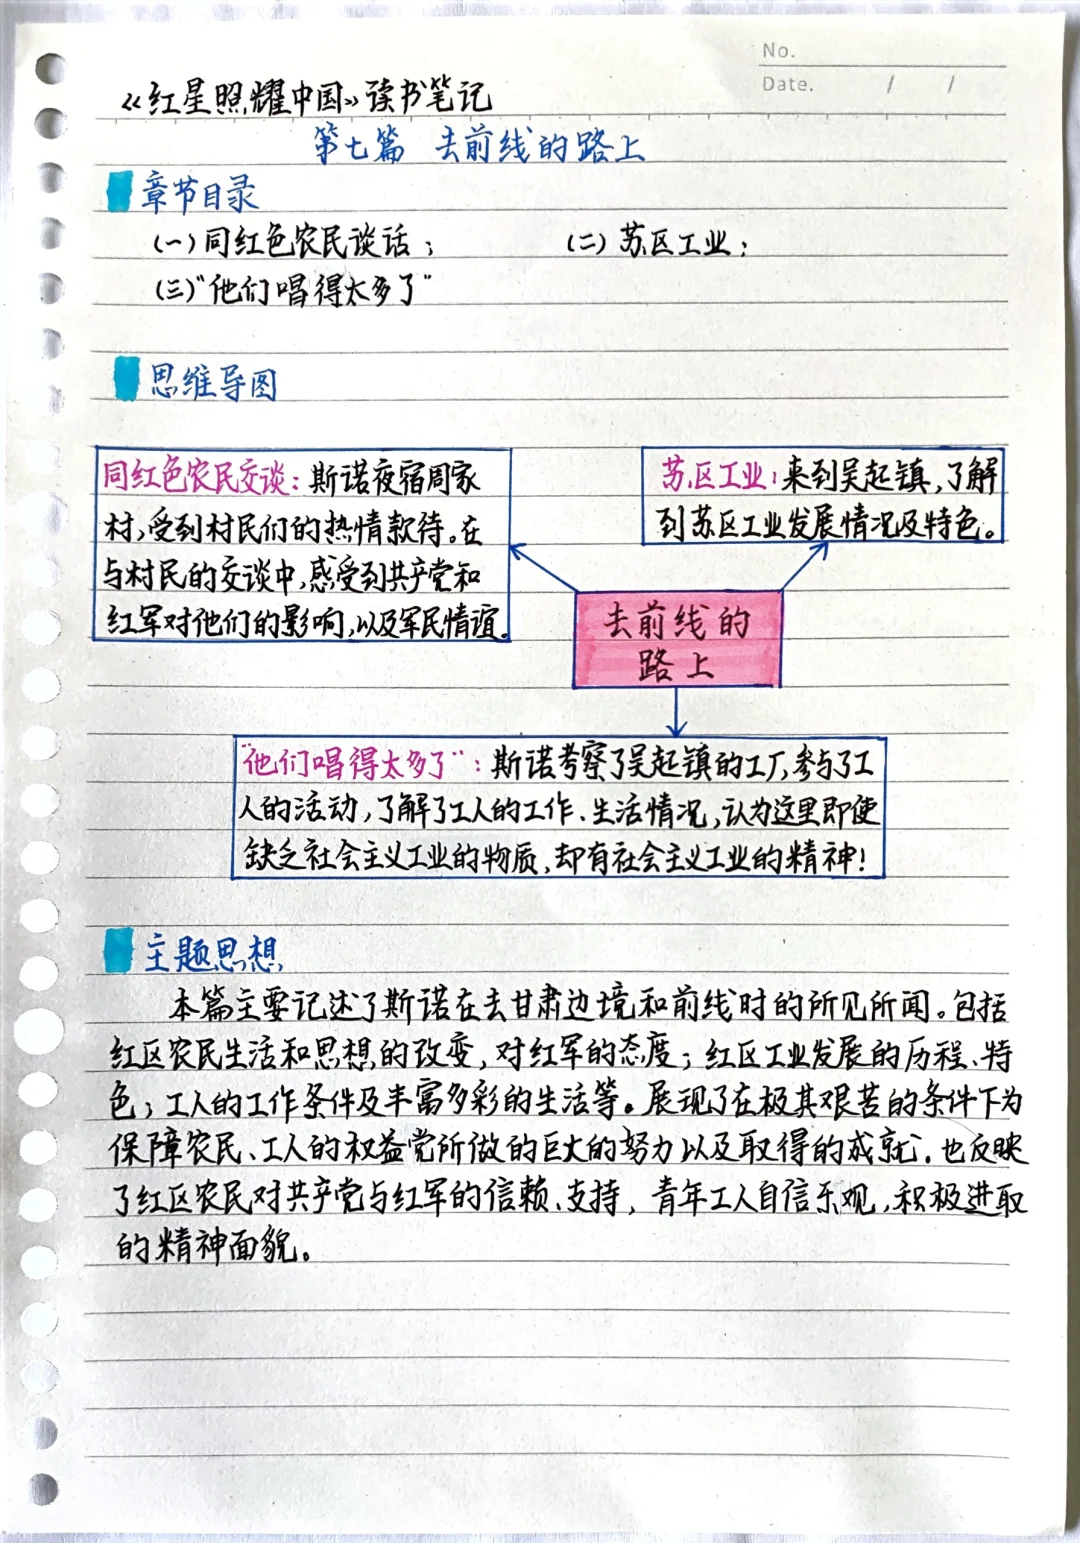 No.
Date. / /
《红星照耀中国》读书笔记
第七篇 去前线的路上
章节目录
(一)同红色农民谈话； (二)苏区工业；
(三)“他们唱得太多了”
思维导图
同红色农民交谈：斯诺夜宿周家
村，受到村民们的热情款待。在
与村民的交谈中，感受到共产党和
红军对他们的影响，以及军民情谊。
苏区工业：来到吴起镇，了解
到苏区工业发展情况及特色。
去前线的
路上
“他们唱得太多了”：斯诺考察了吴起镇的工厂，参与了工
人的活动，了解了工人的工作、生活情况，认为这里即使
缺乏社会主义工业的物质，却有社会主义工业的精神！
主题思想
本篇主要记述了斯诺在去甘肃边境和前线时的所见所闻。包括
红区农民生活和思想的改变，对红军的态度；红区工业发展的历程、特
色；工人的工作条件及丰富多彩的生活等。展现了在极其艰苦的条件下为
保障农民、工人的权益党所做的巨大的努力以及取得的成就。也反映
了红区农民对共产党与红军的信赖、支持，青年工人自信乐观，积极进取
的精神面貌。